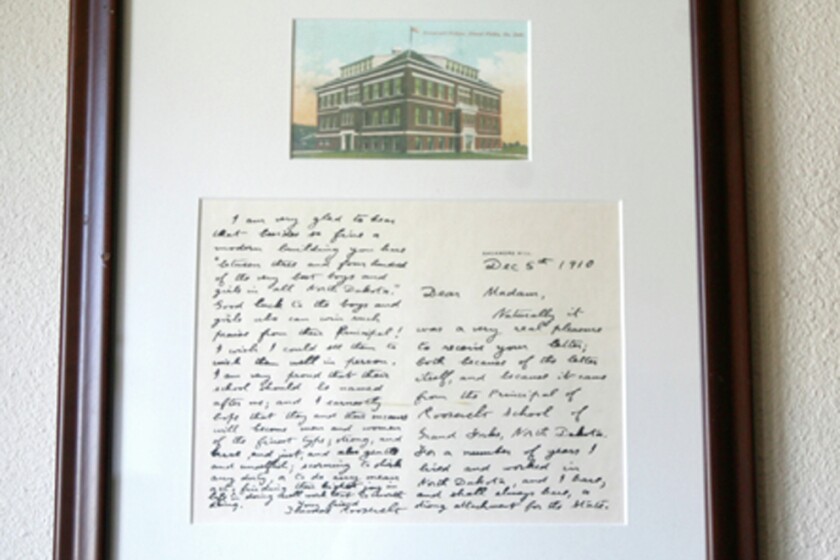 Roosevelt School, Grand Forks, No. Dak.
SAGAMORE HILL.
Dec 5th 1910
Dear Madam,
Naturally it
was a very real pleasure
to receive your letter;
both because of the letter
itself, and because it came
from the Principal of
Roosevelt School of
Grand Forks, North Dakota.
For a number of years I
lived and worked in
North Dakota, and I have,
and shall always have, a
strong attachment for the State.
I am very glad to hear
that besides so fine a
modern building you have
"between three and four hundred
of the very best boys and
girls in all North Dakota."
Good luck to the boys and
girls who can win such
praise from their Principal!
I wish I could see them to
wish them well in person.
I am very proud that their
school should be named
after me; and I earnestly
hope that they and their
will become men and women
of the finest type; strong, and
brave, and just, and also gentle
and unselfish; scorning to shirk
any duty, or to do any mean
finding their highest joy in
life in doing well work that is worth
doing. Your friend
Theodore Roosevelt